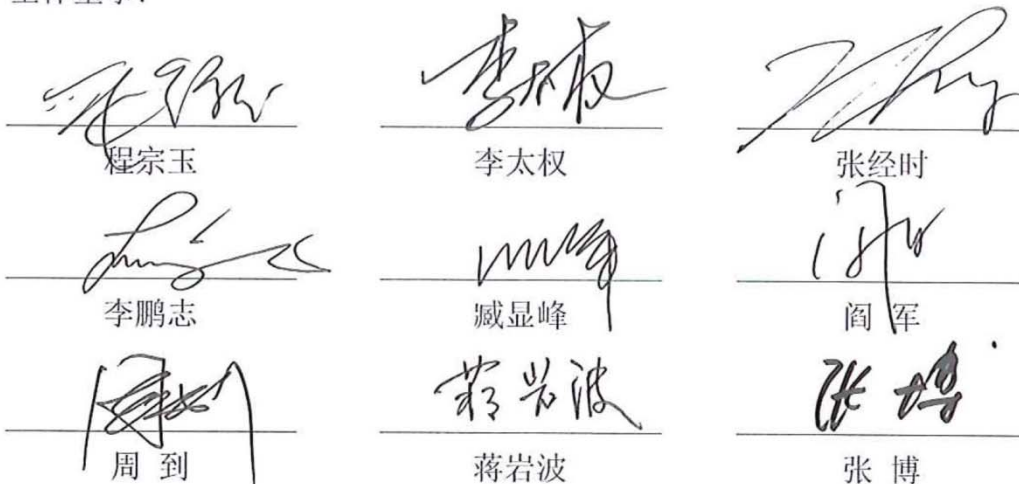 程宗玉 李太权 张经时
李鹏志 臧显峰 阎 军
周 到 蒋岩波 张 博